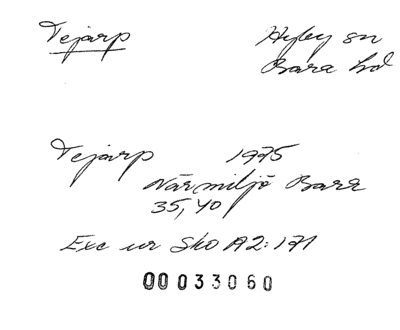 Tejarp
Hyby sn
Bara hd
Tejarp 1975
Närmiljö Bara
35, 40
Exc ur Sko A2:171
00033060